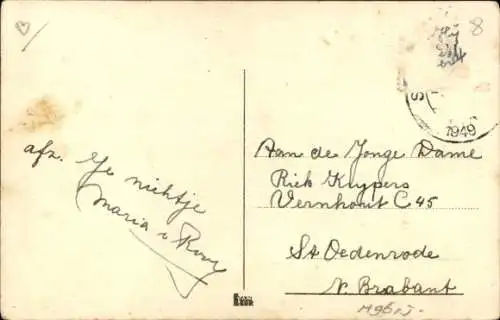 8
1949
afz. Je nichtje
Maria v Rooy
Aan de Jonge Dame
Riek Kuypers
Vernhout C 45
St Oedenrode
N. Brabant